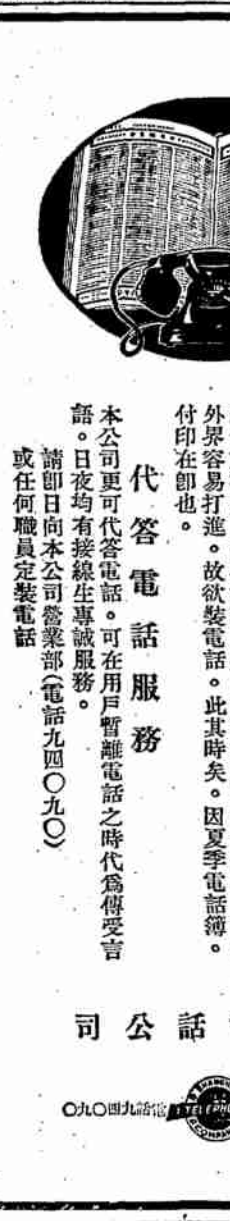 外界容易打進。故欲裝電話。此其時矣。因夏季電話簿。
付印在卽也。
代答電話服務
本公司更可代答電話。可在用戶暫離電話之時代爲傳受言
語。日夜均有接線生專誠服務。
請卽日向本公司營業部(電話九四〇九〇)
或任何職員定裝電話
話公司
電話九四〇九〇
TELEPHONE
COMPANY